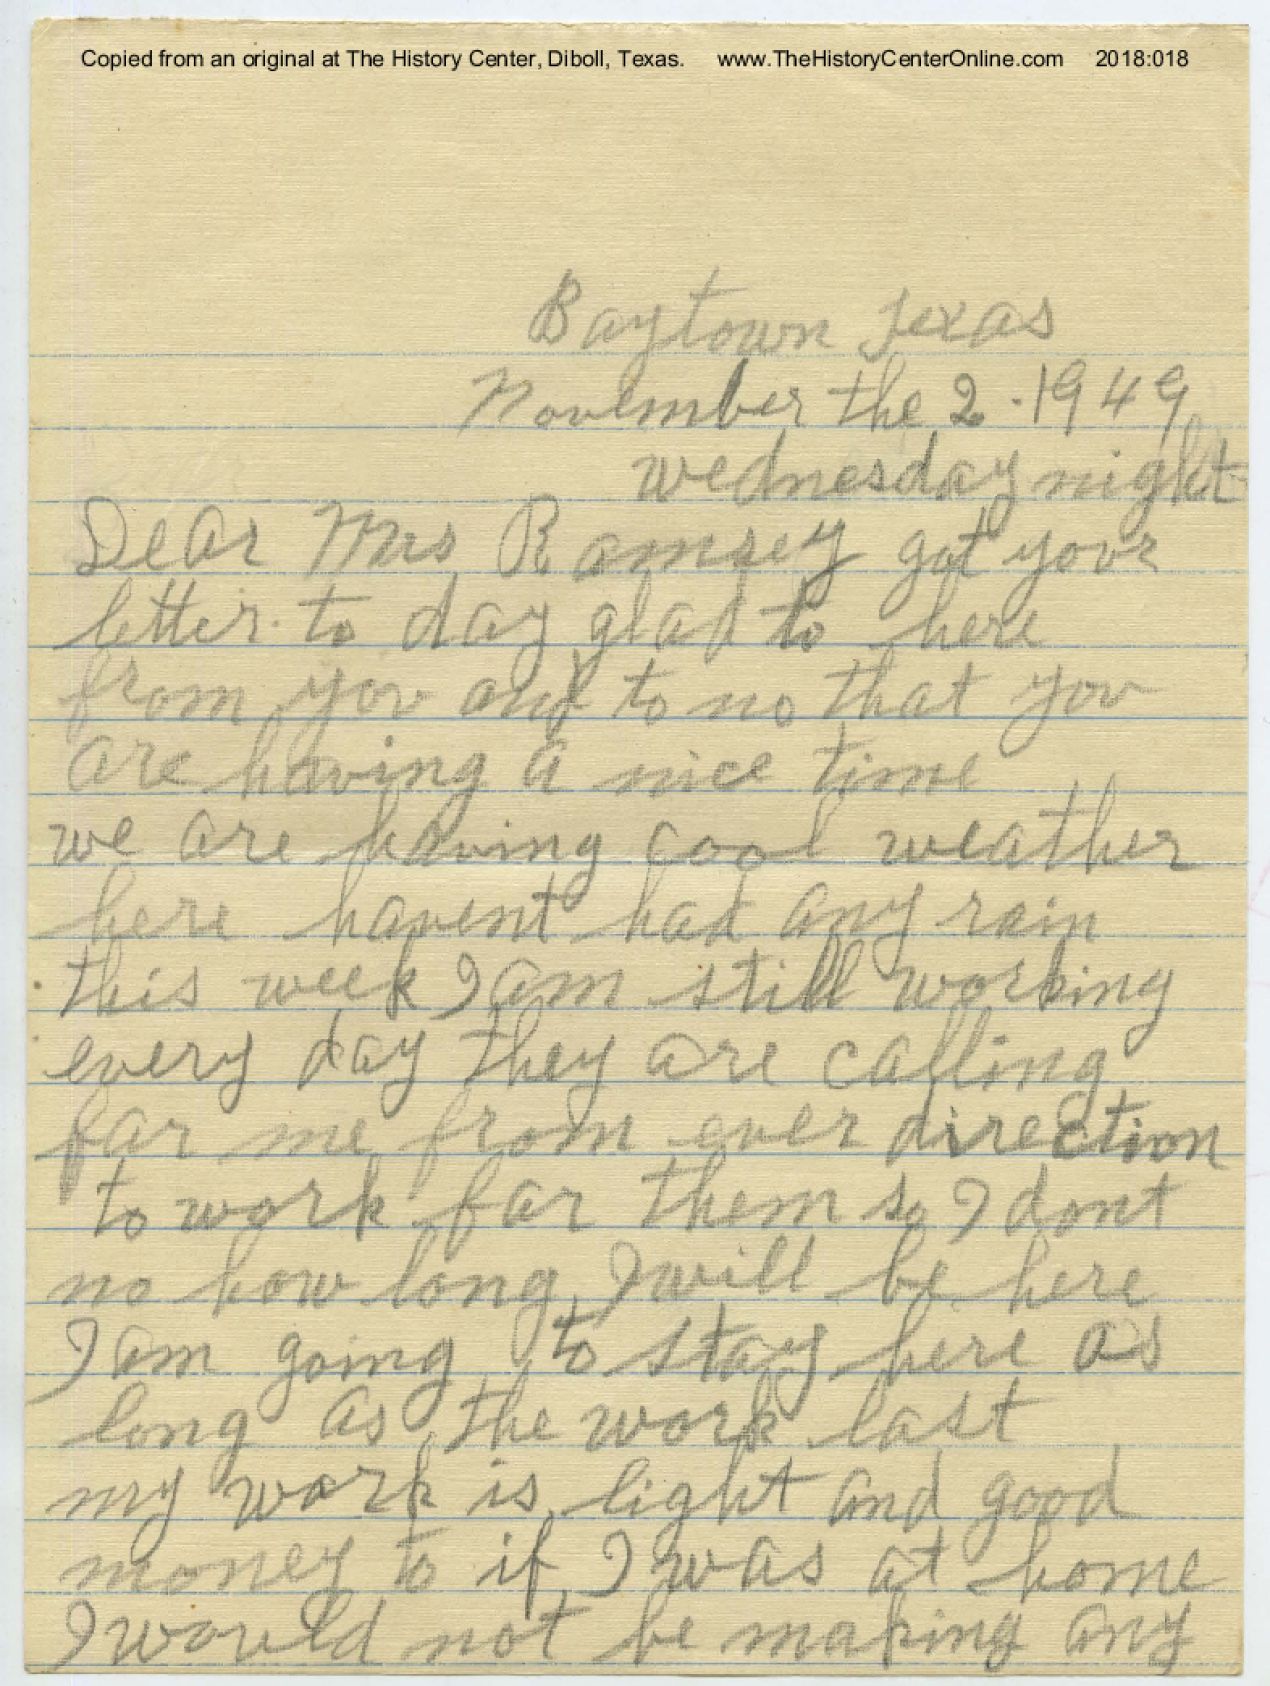 Copied from an original at The History Center, Diboll, Texas. www.TheHistoryCenterOnline.com 2018:018
Baytown Texas
November the 2. 1949
wednesday night
Dear Mrs Ramsey got your
letter to day glad to here
from you and to no that you
are having a nice time
we are having cool weather
here havent had any rain
this week I am still working
every day they are calling
far me from ever direction
to work far them so I dont
no how long I will be here
I am going to stay here as
long as the work last
my work is light and good
money to if I was at home
I would not be making any